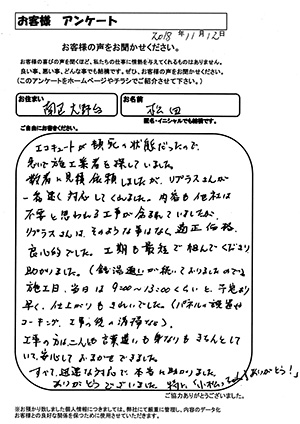 お客様 アンケート
2018年11月12日
お客様の声をお聞かせください。
お客様の喜びの声を聞くほど、私たちの仕事に情熱を与えてくれるものはありません。
良い事、悪い事、どんな事でも結構です。ぜひ、お客様の声をお聞かせください。
(このアンケートをホームページやチラシでご紹介させて下さい)
お住まい
大野台
お名前
松田
匿名・イニシャルでも結構です。
ご自由にお書きください。
エコキュートが瀕死の状態だったので、
急いで施工業者を探していました。
数者に見積依頼しましたが、リプラスさんが
一番速く対応してくれました。内容も他社は
不要と思われる工事が含まれていましたが、
リプラスさんは、そのような事はなく適正価格、
良心的でした。工期も最短で組んでくださり
助かりました。(銭湯通いが続いておりましたので)
施工日、当日は9:00~13:00くらいと、予定より
早く、仕上がりもきれいでした。(パネルの設置や
コーキング、工事後の清掃など)。
工事の方は、二人とも言葉遣いも身なりもきちんとして
いて、安心しておまかせできました。
すべて、迅速な対応で本当に助かりました。
ありがとうございました。特に、(小松)さんありがとう!
ご協力ありがとうございました。
※お預かり致しました個人情報につきましては、弊社にて厳重に管理し、内容のデータ化
お客様との良好な関係を保つために使用させていただきます。